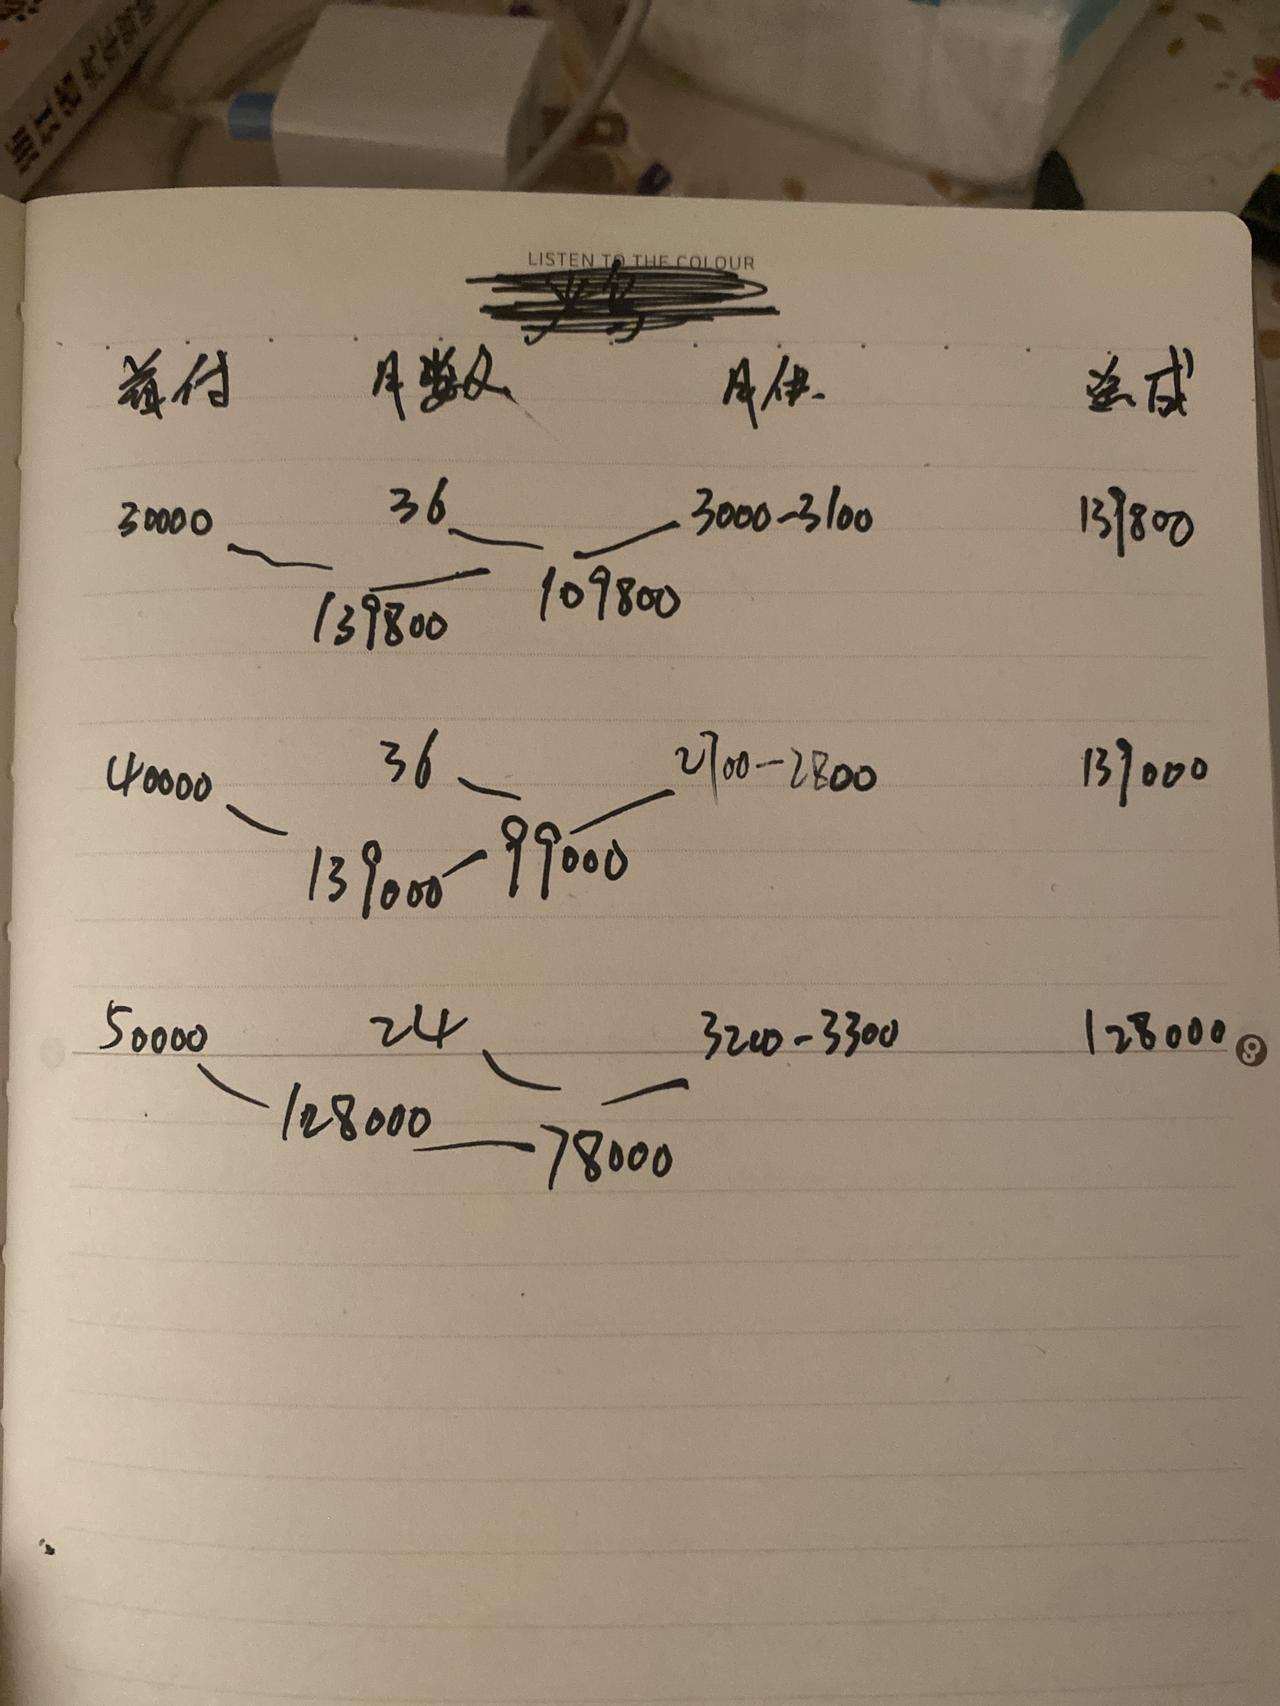 LISTEN TO THE COLOUR
首付 月数 月供 总成
30000 36 3000-3100 139800
139800 109800
40000 36 2700-2800 139000
139000 99000
50000 24 3200-3300 128000
128000 78000